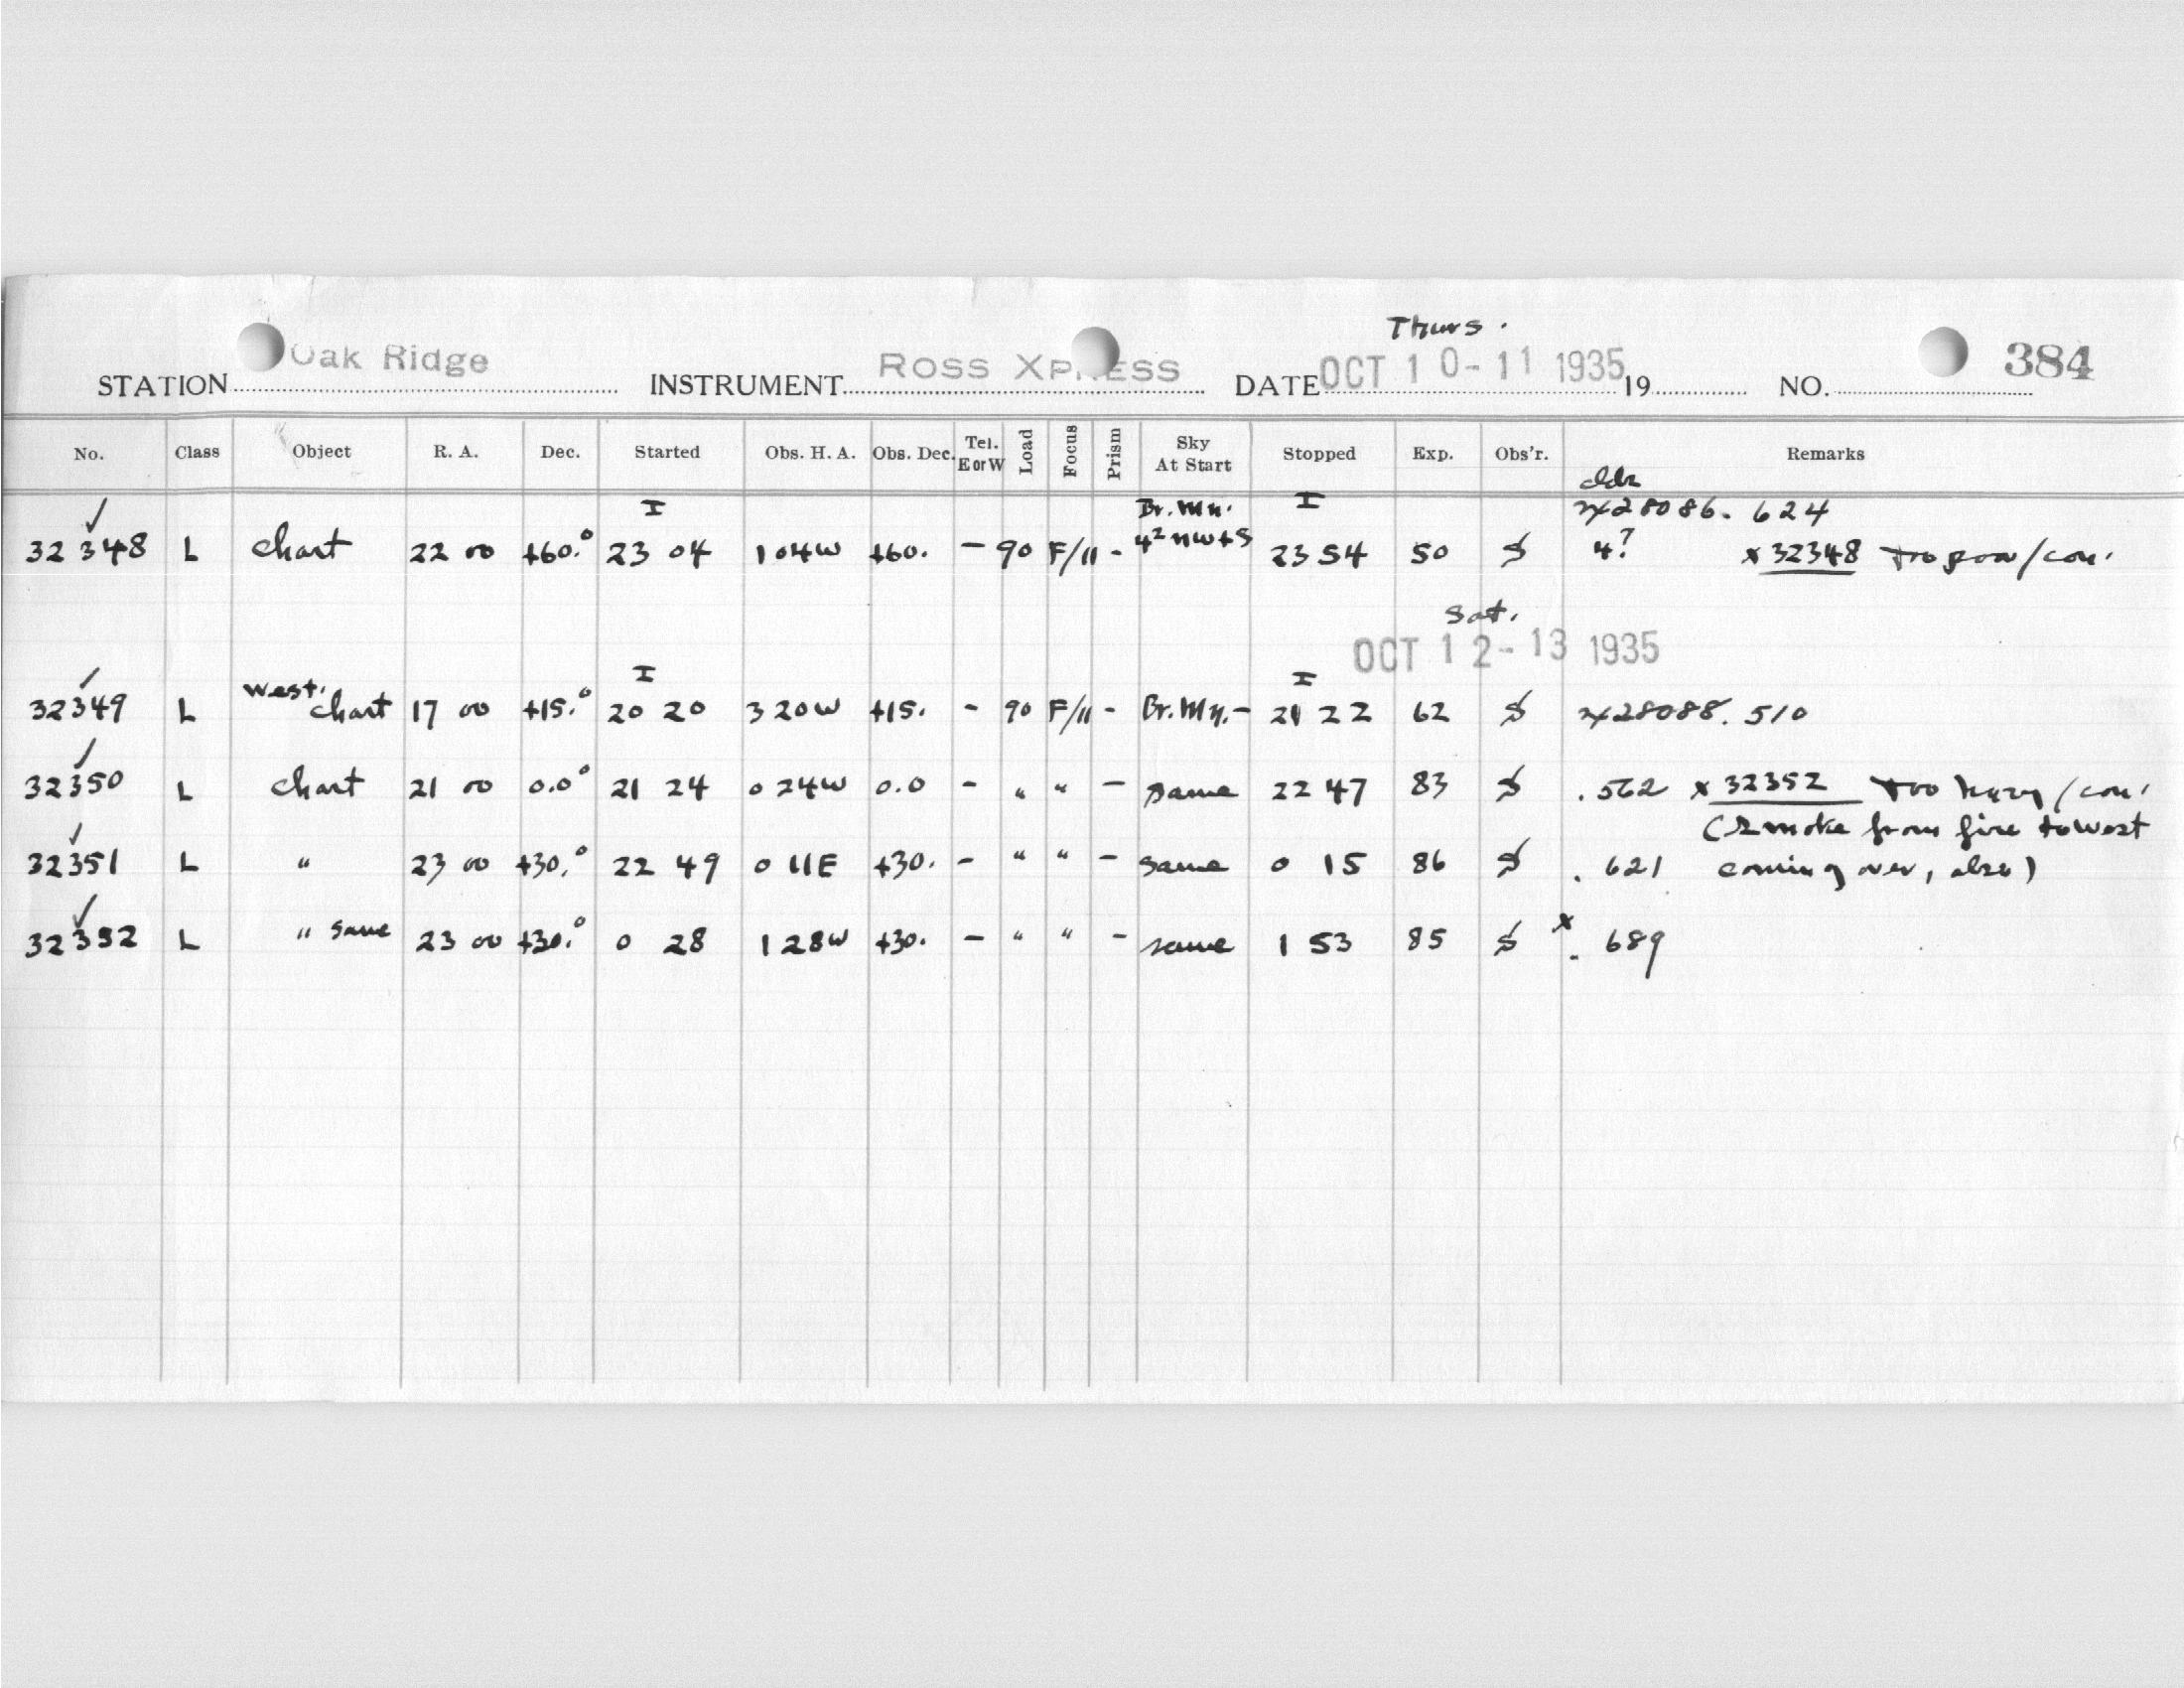 Thurs.
STATION Oak Ridge INSTRUMENT ROSS XPRESS DATE OCT 10-11 1935 19 NO. 384
No. Class Object R. A. Dec. Started Obs. H. A. Obs. Dec. Tel. E or W Load Focus Prism Sky At Start Stopped Exp. Obs'r. Remarks
I Br. Mn. I 28086. 624
✓ 32348 L chart 22 00 +60.° 23 04 1 04W +60. - 90 F/11 - 4² NW+S 23 54 50 4? x 32348 Too poor/con.
Sat.
OCT 12-13 1935
I I
✓ 32349 L West. chart 17 00 +15.° 20 20 3 20W +15. - 90 F/11 - Br. Mn. - 21 22 62 28088. 510
✓ 32350 L chart 21 00 0.0° 21 24 0 24W 0.0 - " " - same 22 47 83 .562 x 32352 Too hazy/con.
(smoke from fire to west
✓ 32351 L " 23 00 +30.° 22 49 0 11E +30. - " " - same 0 15 86 . 621 coming over, also)
✓ 32352 L " same 23 00 +30.° 0 28 1 28W +30. - " " - same 1 53 85 x . 689